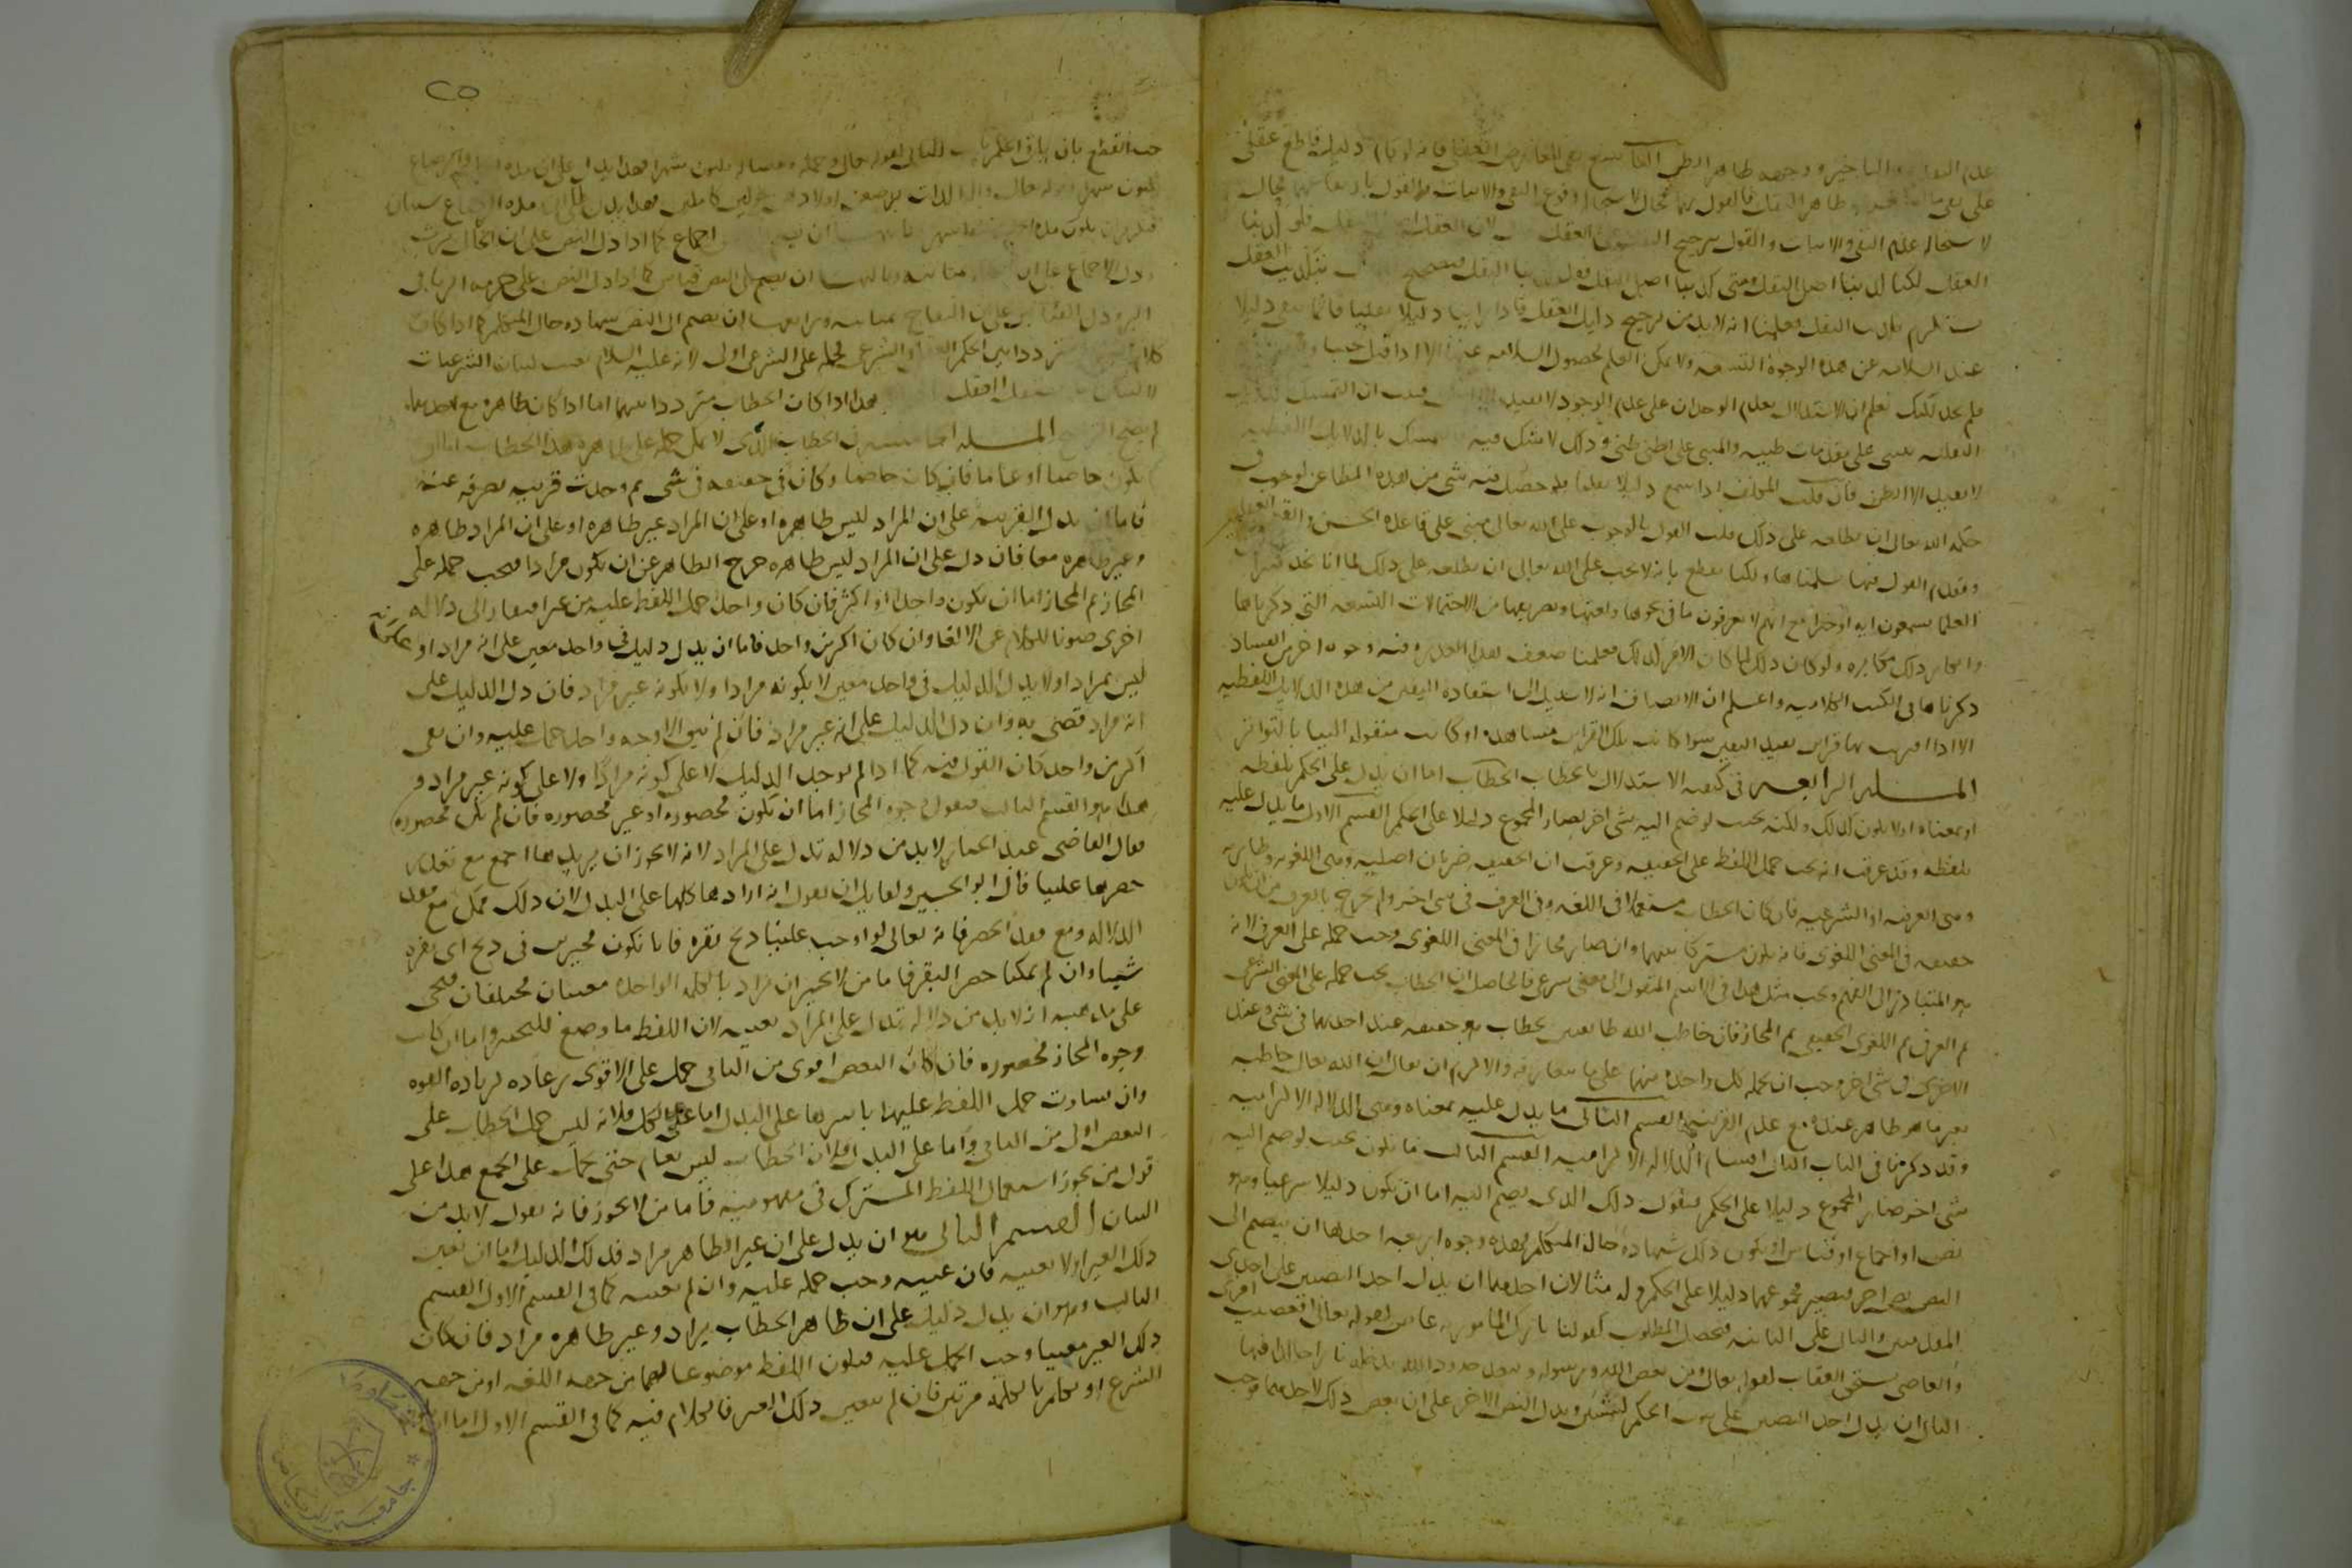 عدم التقديم والتاخير ووجهه ظاهر الظن التاسع نفي المعارض العقلي فانه لو قام دليل قاطع عقلي
على نفي ما ظاهر النقل فالقول بهما محال لاستحالة وقوع النفي والاثبات والقول بارتفاعهما محال
لاستحالة عدم النفي والاثبات والقول بترجيح النقل على العقل لان العقل اصل النقل فلو كذبنا
العقل لكنا كذبنا اصل النقل ومتى كذبنا اصل النقل فقد كذبنا النقل فتصحيح النقل بتكذيب العقل
يستلزم تكذيب النقل فعلمنا انه لابد من ترجيح دليل العقل فاذا راينا دليلا نقليا فانما يبقى دليلا
عند السلامه عن هذه الوجوه التسعه ولا يمكن العلم بحصول السلامه عنها الا اذا قيل بحثنا و
فلم نجد لكنك تعلم ان الاستدلال بعدم الوجدان على عدم الوجود لا يفيد فثبت ان التمسك بالادله
النقليه مبني على مقدمات ظنيه والمبني على الظني ظني وذلك لا شك فيه التمسك بالدلايل اللفظيه
لا يفيد الا الظن فان قلت المكلف اذا سمع دليلا نقليا فلو حصل فيه شي من هذه المطاعن لوجب في
حكمه الله تعالى ان يطلعه على ذلك قلت القول بالوجوب على الله تعالى مبني على قاعده الحسن والقبح العقليين
وتقدم القول فيها سلمناها ولكنا نقطع بانه لا يجب على الله تعالى ان يطلعه على ذلك لما انا نجد كثيرا من
العلما يسمعون ايه او خبرا مع انهم لا يعرفون ما في نحوها ولغتها وتصريفها من الاحتمالات التسعه التي ذكرناها
وانكار ذلك مكابره ولو كان ذلك لما كان الامر كذلك فعلمنا ضعف هذا العذر وفيه وجوه اخر من الفساد
ذكرناها في الكتب الكلاميه واعلم ان الانصاف انه لا سبيل الى استفاده اليقين من هذه الدلايل اللفظيه
الا اذا اقترنت بها قراين تفيد اليقين سوا كانت تلك القراين مشاهده او كانت منقوله الينا بالتواتر
المسله الرابعه في كيفيه الاستدلال بالخطاب الخطاب اما ان يدل على الحكم بلفظه
او بمعناه او لا يكون كذلك ولكنه بحيث لو ضم اليه شي اخر لصار المجموع دليلا على الحكم القسم الاول ما يدل عليه
بلفظه وقد عرفت انه يجب حمل اللفظ على الحقيقه وعرفت ان الحقيقه ضربان اصليه وهي اللغويه وطاريه
وهي العرفيه او الشرعيه فان كان الخطاب مستعملا في اللغه وفي العرف في شي اخر ولم يخرج بالعرف من ان يكون
حقيقه في المعنى اللغوي فانه يكون مشتركا بينهما وان صار مجازا في المعنى اللغوي وجب حمله على العرفي لانه
هو المتبادر الى الفهم ويجب مثل هذا في الاسم المنقول الى معنى شرعي فالحاصل ان الخطاب يجب حمله على المعنى الشرعي
ثم العرفي ثم اللغوي الحقيقي ثم المجاز فان خاطب الله طايفتين بخطاب هو حقيقه عند احداهما في شي وعند
الاخرى في شي اخر وجب ان تحمله كل واحده منهما على ما تتعارفه والا لزم ان يقال ان الله تعالى خاطبه
بغير ما هو ظاهر عنده مع عدم القرينه القسم الثاني ما يدل عليه بمعناه وهي الدلاله الالتزاميه
وقد ذكرنا في الباب الاول اقسام الدلاله الالتزاميه القسم الثالث ما يكون بحيث لو ضم اليه
شي اخر صار المجموع دليلا على الحكم فنقول ذلك الذي يضم اليه اما ان يكون دليلا شرعيا وهو
نص او اجماع او قياس او يكون ذلك شهاده حال المتكلم فهذه وجوه اربعه احدها ان ينضم الى
النص نص اخر فيصير مجموعهما دليلا على الحكم وله مثالان احدهما ان يدل احد النصين على احدى
المقدمتين والثاني على الثانيه فيحصل المطلوب كقولنا تارك المامور به عاص لقوله تعالى افعصيت امري
والعاصي يستحق العقاب لقوله تعالى ومن يعص الله ورسوله ويتعد حدوده يدخله نارا خالدا فيها
الثاني ان يدل احد النصين على ثبوت الحكم لشيئين ويدل النص الاخر على ان بعض ذلك لاحدهما فوجب
٢٥
حب القطع بان باقي الحكم ثابت للثاني لقوله تعالى وحمله وفصاله ثلثون شهرا فهذا يدل على ان مده الحمل والرضاع
ثلثون شهرا وقوله تعالى والوالدات يرضعن اولادهن حولين كاملين فهذا يدل على ان مده الرضاع سنتان
فيلزم ان يكون مده الحمل سته اشهر وثانيها ان ينضم اجماع كما اذا دل النص على ان الخال يرث
ودل الاجماع على ان بمثابته وثالثها ان ينضم الى النص قياس كما اذا دل النص على حرمه الربا في
البر ودل القياس على ان التفاح بمثابته ورابعها ان ينضم الى النص شهاده حال المتكلم كما اذا كان
كلام مترددا بين الحكم العقلي والشرعي فحمله على الشرعي اولى لانه عليه السلام بعث لبيان الشرعيات
لا لبيان هذا اذا كان الخطاب مترددا بينهما اما اذا كان ظاهره مع احدهما
لم يصح الترجيح المسله الخامسه في الخطاب الذي لا يمكن حمله على ظاهره هذا الخطاب اما ان
يكون خاصا او عاما فان كان خاصا وكان في حقيقته في شي ثم وجدت قرينه تصرفه عنه
فاما ان تدل القرينه على ان المراد ليس ظاهره او على ان المراد غير ظاهره او على ان المراد ظاهره
وغير ظاهره معا فان دل على ان المراد ليس ظاهره خرج الظاهر عن ان يكون مرادا فيجب حمله على
المجاز ثم المجاز اما ان يكون واحدا او اكثر فان كان واحدا حمل اللفظ عليه من غير افتقار الى دلاله
اخرى صونا للكلام عن الالغا وان كان اكثر من واحد فاما ان يدل دليل في واحد معين على انه مراد او
ليس بمراد او لا يدل الدليل في واحد معين لا بكونه مرادا ولا بكونه غير مراد فان دل الدليل على
انه مراد قضي به وان دل الدليل على انه غير مراد فان لم يبق الا وجه واحد حمل عليه وان بقي
اكثر من واحد كان القول فيه كما اذا لم يوجد الدليل لا على كونه مرادا ولا على كونه غير مراد و
هذا هو القسم الثالث فنقول وجوه المجاز اما ان تكون محصوره او غير محصوره فان لم تكن محصوره
فقال القاضي عبد الجبار لابد من دلاله تدل على المراد لانه لا يجوز ان يريدها اجمع مع تعذر
حصرها علينا قال ابو الحسين ولقايل ان يقول انه ارادها كلها على البدل لان ذلك ممكن مع فقد
الدلاله ومع فقد الحصر فانه تعالى لو اوجب علينا ذبح بقره فانا نكون مخيرين في ذبح اي بقره
شينا وان لم يمكنا حصر البقر فاما من لا يجيز ان يراد بالكلمه الواحده معنيان مختلفان فيجي
على مذهبه انه لابد من دلاله تدل على المراد بعينه لان اللفظ ما وضع للتخيير واما ان كانت
وجوه المجاز محصوره فان كان البعض اقوى من الباقي حمل على الاقوى رعايه لزياده القوه
وان تساوت حمل اللفظ عليها باسرها على البدل اما على الكل فلانه ليس حمل الخطاب على
البعض اولى من الباقي واما على البدل فلان الخطاب ليس بعام حتى يحمل على الجمع هذا على
قول من يجوز استعمال اللفظ المشترك في مفهوميه فاما من لا يجوز فانه يقول لابد من
البيان القسم الثاني هو ان يدل على ان غير الظاهر مراد فذلك الدليل اما ان يعين
ذلك الغير او لا يعينه فان عينه وجب حمله عليه وان لم يعينه كما في القسم الاول القسم
الثالث وهو ان يدل دليل على ان ظاهر الخطاب يراد وغير ظاهره مراد فان كان
ذلك الغير معينا وجب الحمل عليه فيكون اللفظ موضوعا لهما من جهه اللغه او من جهه
الشرع او تكلم بالكلمه مرتين فان لم يتعين ذلك الغير فالكلام فيه كما في القسم الاول اما ان
جامعة الرياض